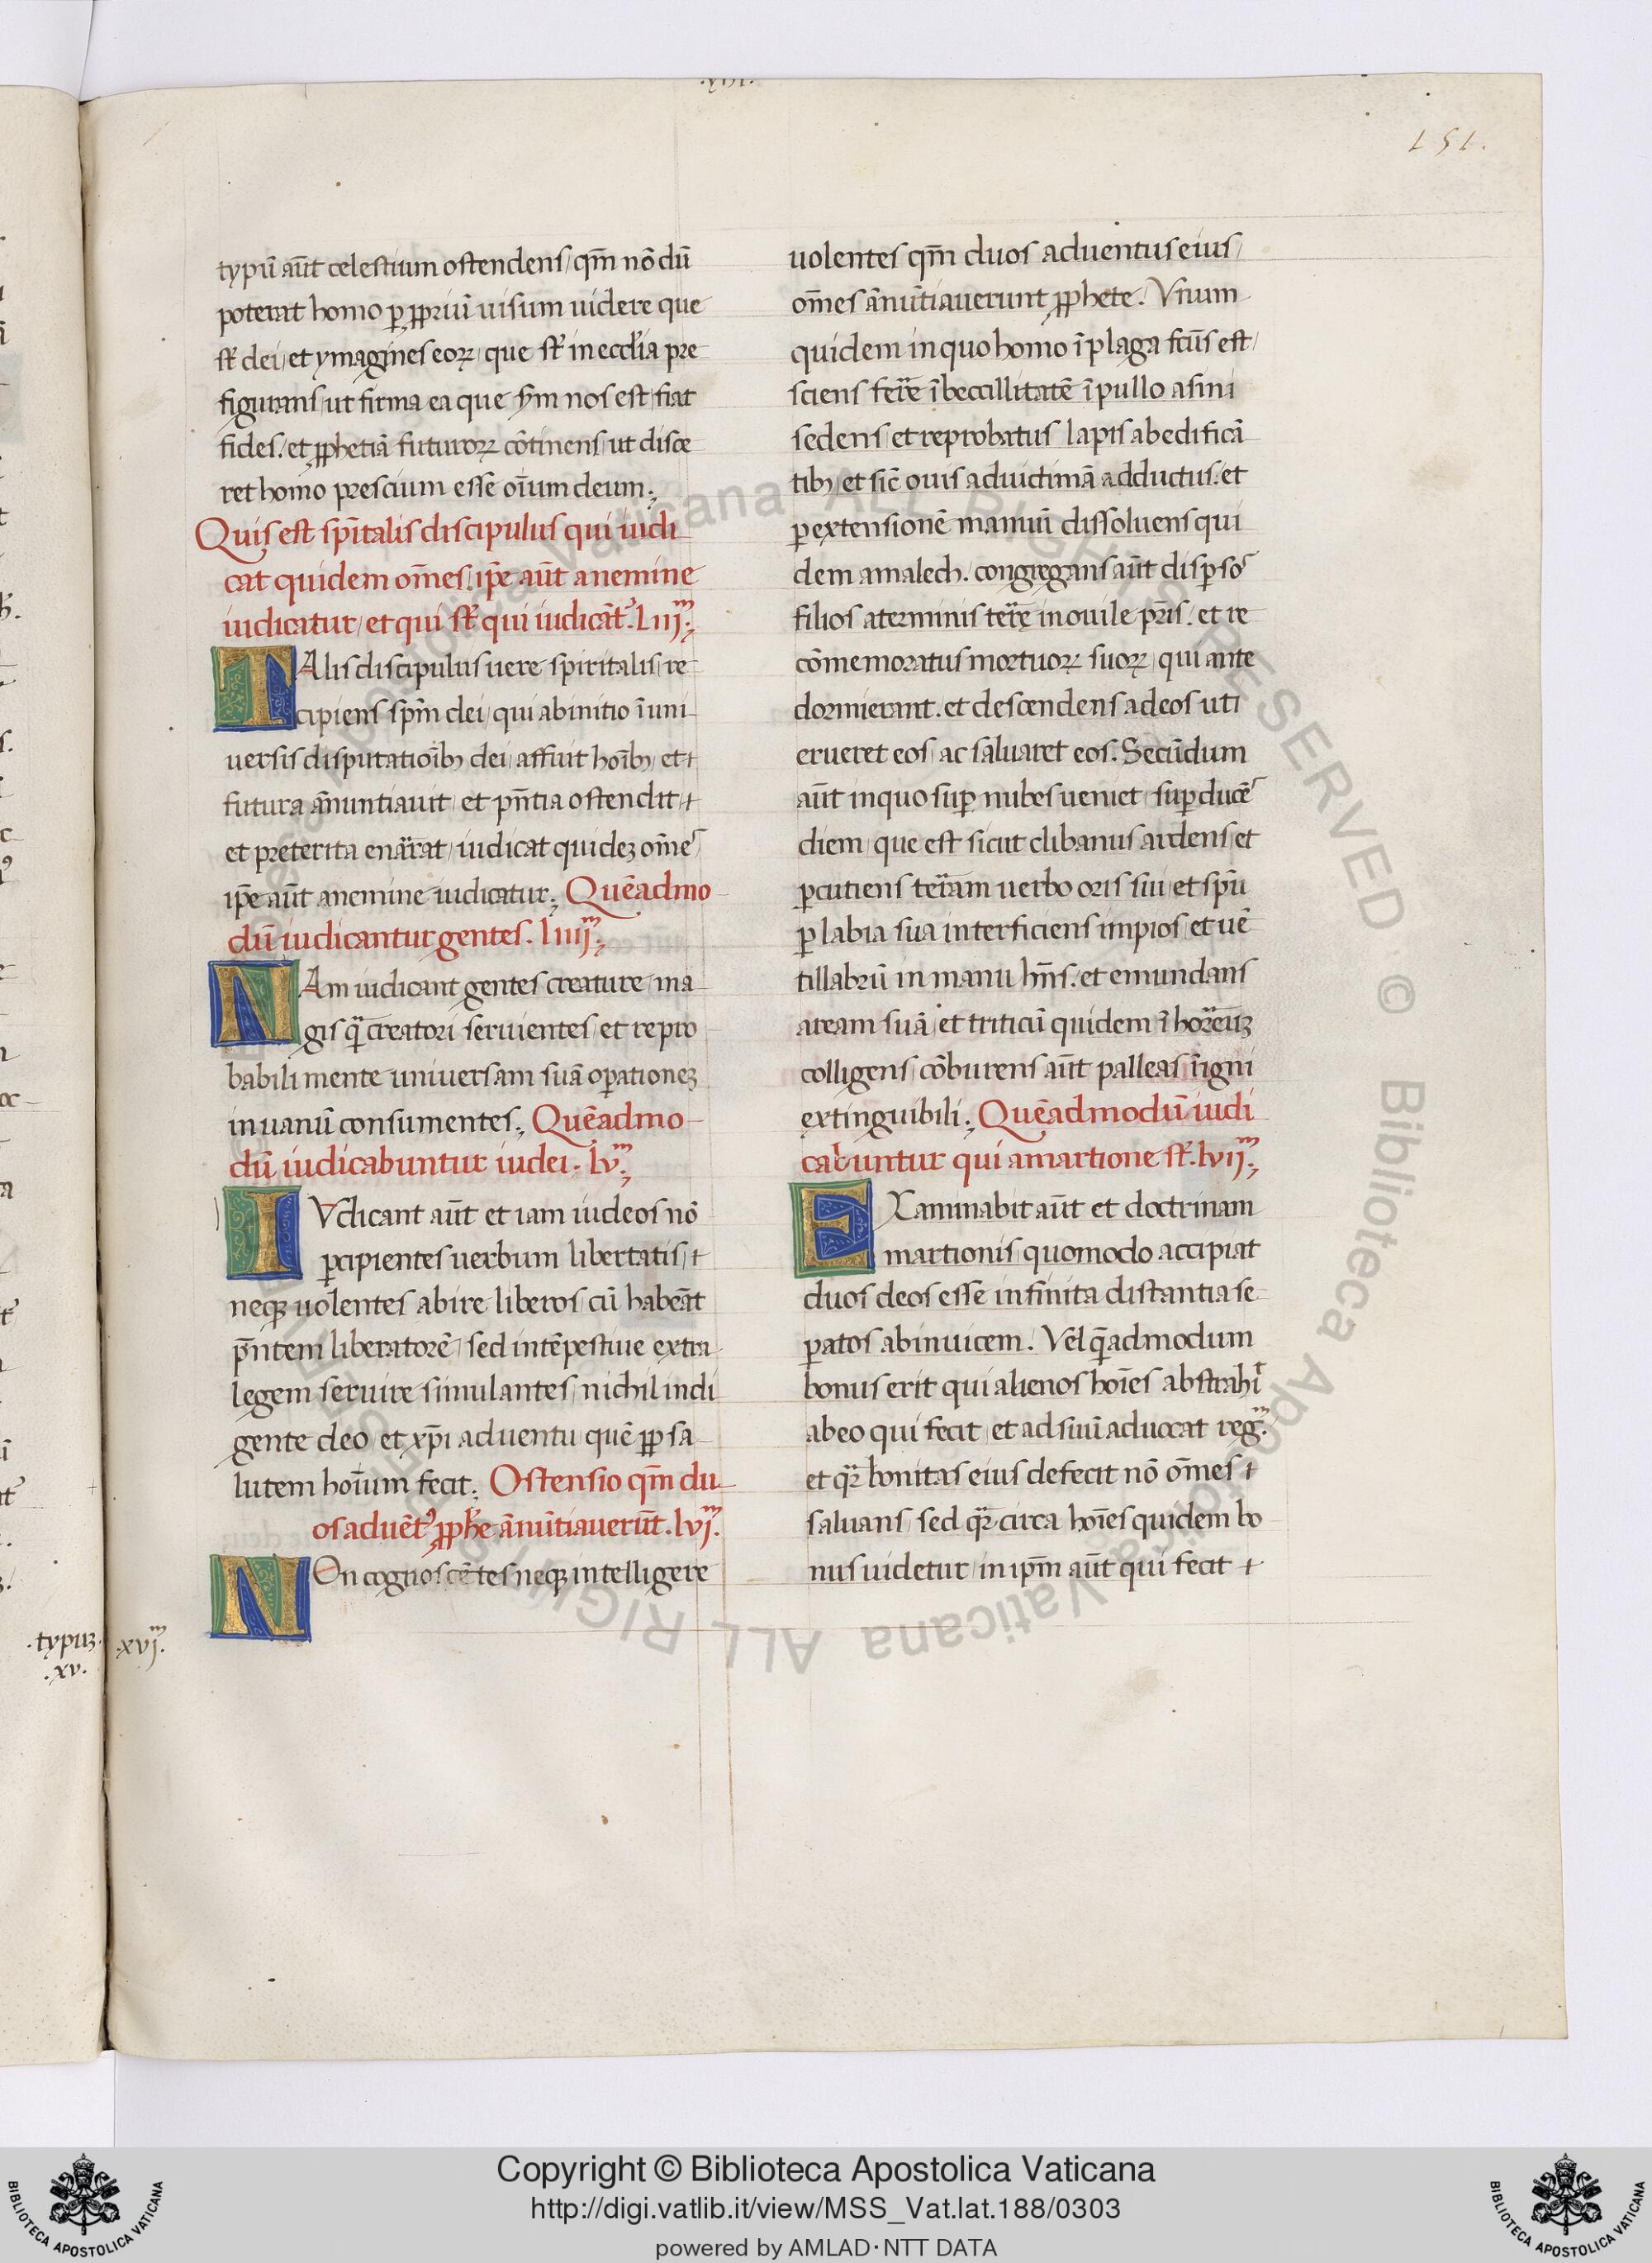 .xvii.
151.
typū aūt celestium ostendens, qm̄ nō dū
poterat homo ꝑ ꝓpriū uisum uidere que
st̄ dei, et ymagines eoꝝ, que st̄ in ecclīa pre
figurans, ut firma ea que s̄m nos est, fiat
fides. et ꝓphetiā futuroꝝ cōtinens, ut disce
ret homo prescium esse oīum deum.
Quis est sp̄italis discipulus qui iudi
cat quidem om̄es, ip̄e aūt a nemine
iudicatur, et qui st̄ qui iudicāt᷒. Liijᵐ.
TAlis discipulus uere spiritalis re
cipiens sp̄m dei, qui ab initio ī uni
uersis disputatiōibꝫ dei, affuit hoībꝫ, et
futura ānuntiauit, et pn̄tia ostendit,
et preterita enārat, iudicat quideꝫ om̄es
ip̄e aūt a nemine iudicatur. Quēadmo
dū iudicantur gentes. liiijᵐ.
NAm iudicant gentes creature ma
gis q̄ creatori seruientes, et repro
babili mente uniuersam suā oꝑationeꝫ
in uanū consumentes. Quēadmo
dū iudicabuntur iudei. lvᵐ.
IVdicant aūt et iam iudeos nō
ꝑcipientes uerbum libertatis,
neqꝫ uolentes abire liberos, cū habeāt
p̄ntem liberatorē, sed intēpestiue extra
legem seruire simulantes, nichil indi
gente deo, et xp̄i aduentu quē ꝓp sa
lutem hoīum fecit. Ostensio qm̄ du
os aduēt᷒ ꝓphe ānūtiauerūt. lvjᵐ.
NOn cognoscētes neqꝫ intelligere
uolentes qm̄ duos aduentus eius,
om̄es ānūtiauerunt ꝓphete. Vnum
quidem in quo homo ī plaga fc̄us est,
sciens ferre ībecillitatē ī pullo asini
sedens, et reprobatus lapis ab edificā
tibꝫ, et sic̄ ouis ad uictimā adductus. et
ꝑ extensionē manuū dissoluens qui
dem amalech. congregans aūt disꝑsos
filios a terminis terrę in ouile pr̄is. et re
cōmemoratus mortuoꝝ suoꝝ, qui ante
dormierant. et descendens ad eos uti
erueret eos, ac saluaret eos. Secūdum
aūt in quo suꝑ nubes ueniet, suꝑducēs
diem, que est sicut clibanus ardens, et
ꝑcutiens terram uerbo oris sui, et sp̄u
ꝑ labia sua interficiens impios, et uē
tillabrū in manu hn̄s. et emundans
aream suā, et triticū quidem ī horreuꝫ
colligens, cōburens aūt palleas īigni
extinguibili. Quēadmodū iudi
cabuntur qui a martione st̄. lvijᵐ.
EXaminabit aūt et doctrinam
martionis, quomodo accipiat
duos deos esse infinita distantia se
ꝑatos abinuicem. Vel q̄admodum
bonus erit qui alienos hoīes abstrahit
ab eo qui fecit, et ad suū aduocat regᵐ.
et qr̄ bonitas eius defecit nō om̄es
saluans, sed qr̄ circa hoīes quidem bo
nus uidetur, in ip̄m aūt qui fecit
.typuꝫ.
.xv.
.xvjᵐ.
Copyright © Biblioteca Apostolica Vaticana
http://digi.vatlib.it/view/MSS_Vat.lat.188/0303
powered by AMLAD·NTT DATA